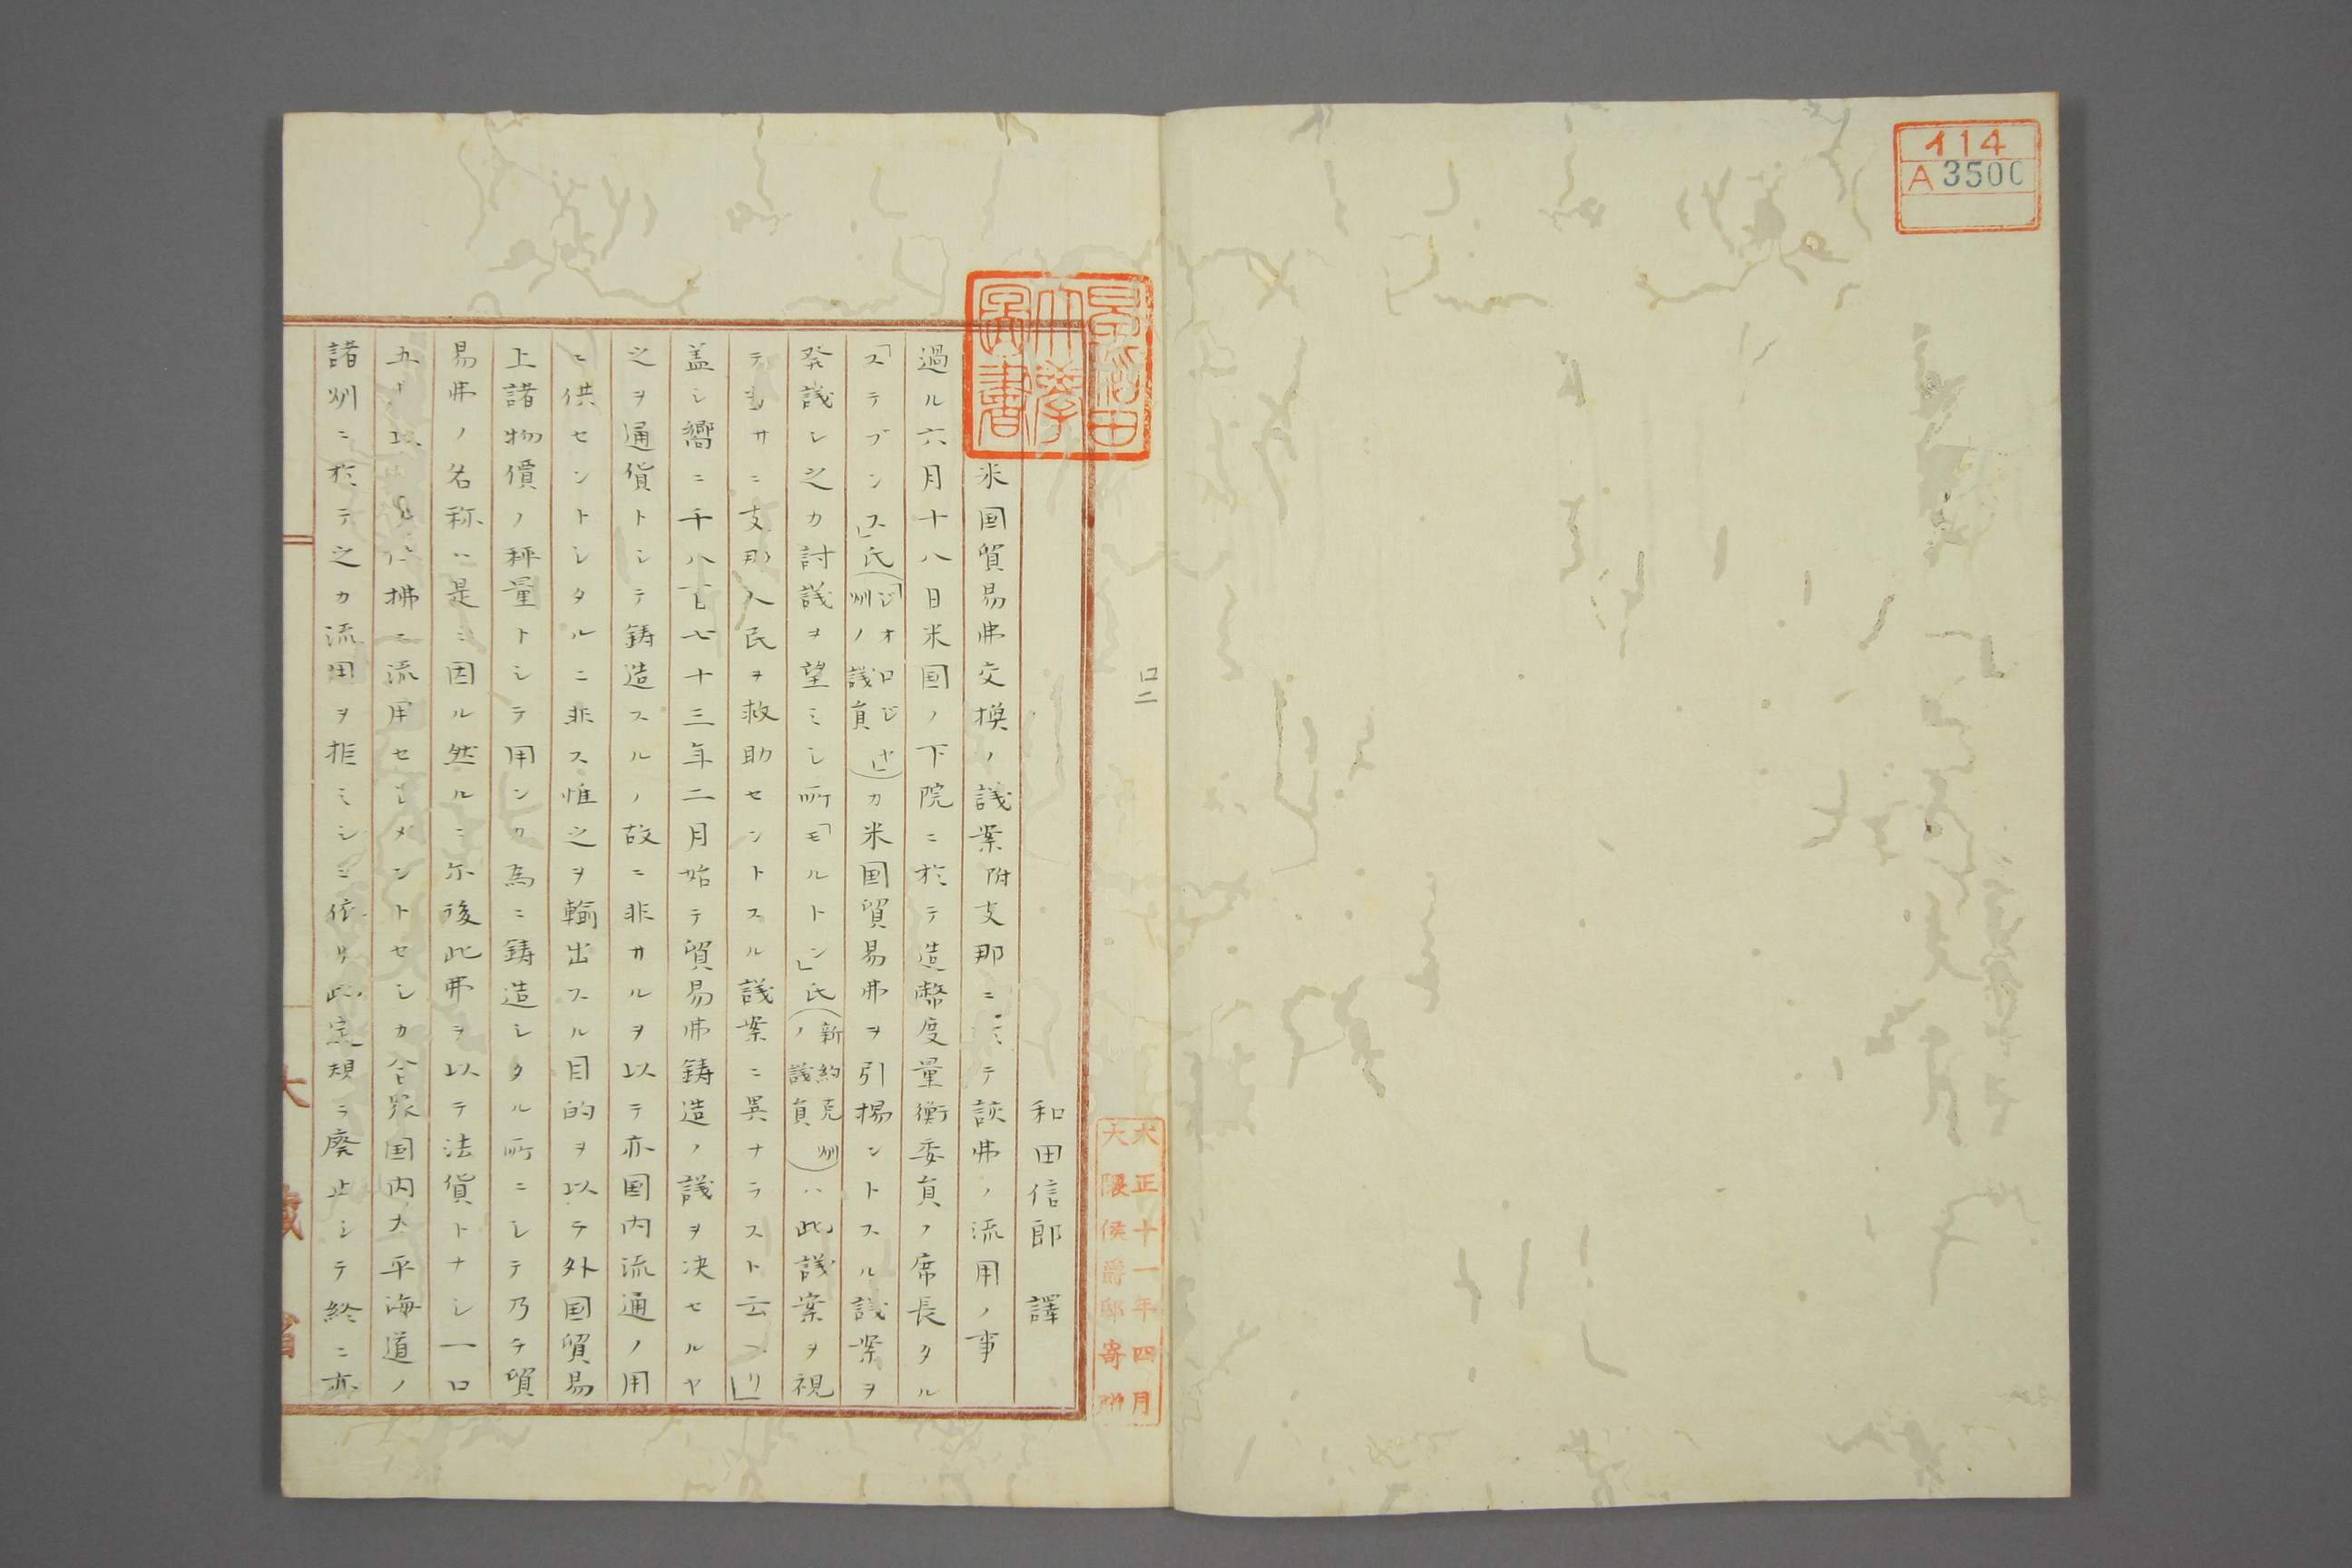 イ14
A3500
早稲田大學圖書
大正十一年四月
大隈侯爵邸寄贈
和田信郎 譯
米国貿易弗交換ノ議案附支那ニ於テ該弗ノ流用ノ事
過ル六月十八日米国ノ下院ニ於テ造幣度量衡委員ノ席長タル
「ステブンス」氏(「ジオロジヤ」州ノ議員)カ米国貿易弗ヲ引揚ントスル議案ヲ
発議シ之カ討議ヲ望ミシ所「モルトン」氏(新約克州ノ議員)ハ此議案ヲ視
テ サニ支那人民ヲ救助セントスル議案ニ異ナラスト云ヘリ」
盖シ嚮ニ千八百七十三年二月始テ貿易弗鋳造ノ議ヲ决セルヤ
之ヲ通貨トシテ鋳造スルノ故ニ非サルヲ以テ亦国内流通ノ用
ニ供セントシタルニ非ス惟之ヲ輸出スル目的ヲ以テ外国貿易
上諸物價ノ秤量トシテ用ンカ為ニ鋳造シタル所ニシテ乃チ貿
易弗ノ名称ハ是ニ因ル然ルニ尓後此弗ヲ以テ法貨トナシ一口
五 以 拂ニ流用セシメントセシカ合衆国内太平海道ノ
諸州ニ於テ之カ流用ヲ拒ミシニ依リ此定規ヲ廃止シテ終ニ亦
大藏省
口二